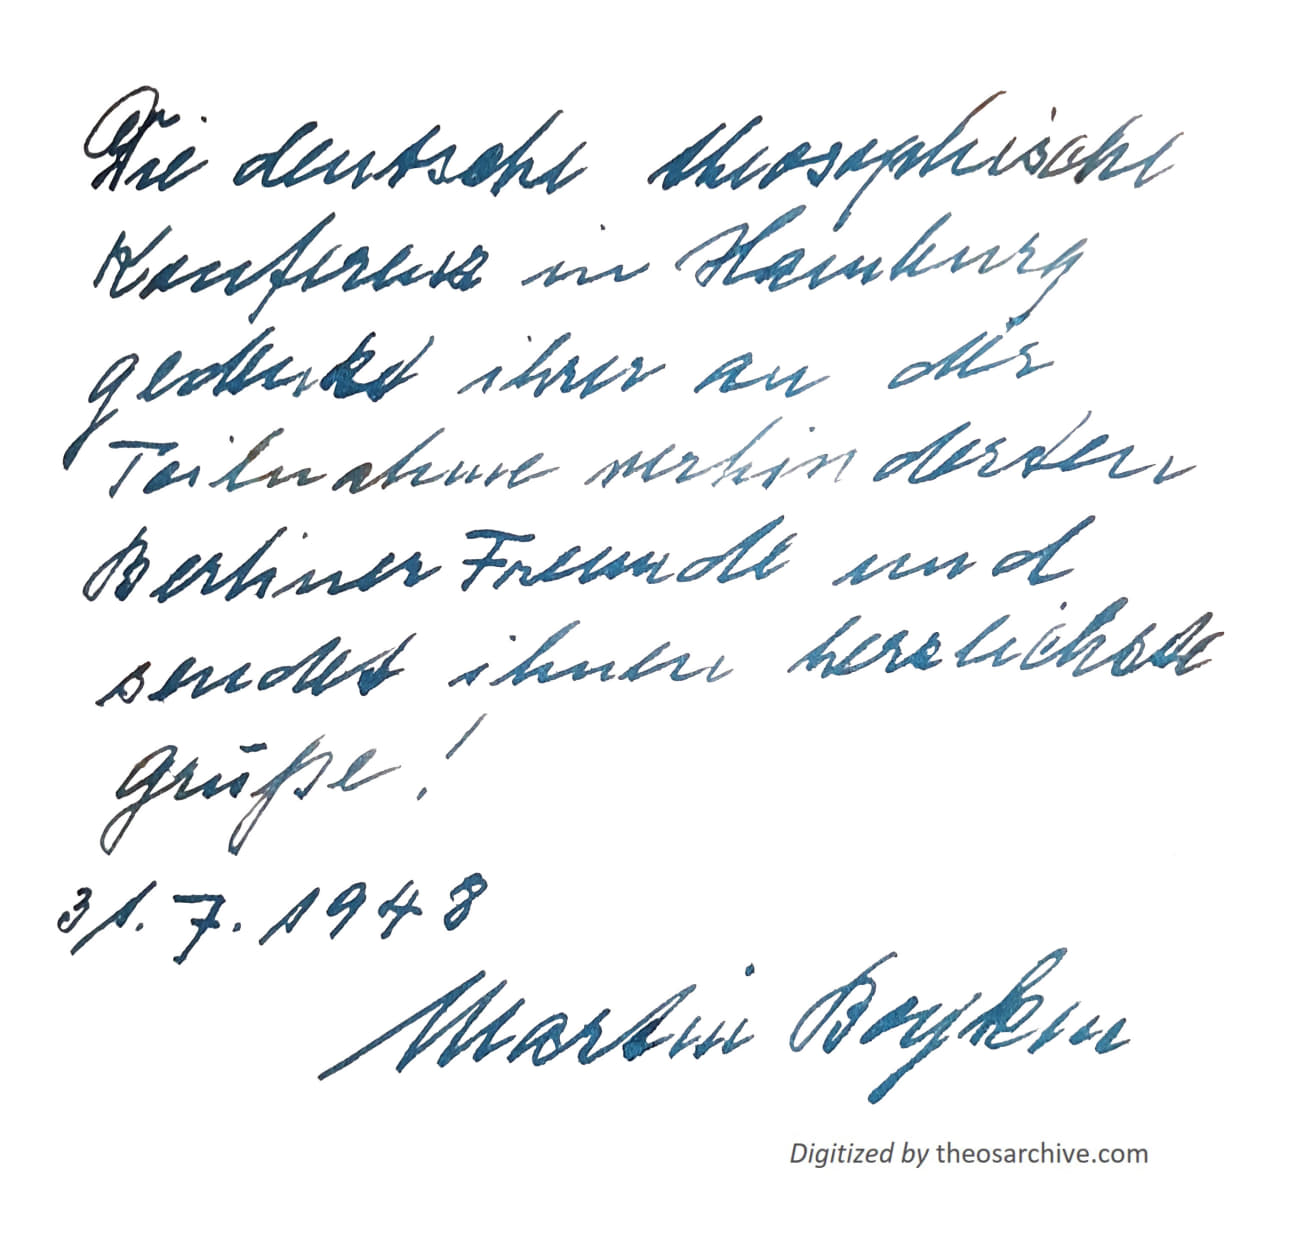 Die deutsche theosophische
Konferenz in Hamburg
gedenkt ihrer an der
Teilnahme verhinderten
Berliner Freunde und
sendet ihnen herzlichste
Grüße!
31. 7. 1948
Martin Boyken
Digitized by theosarchive.com